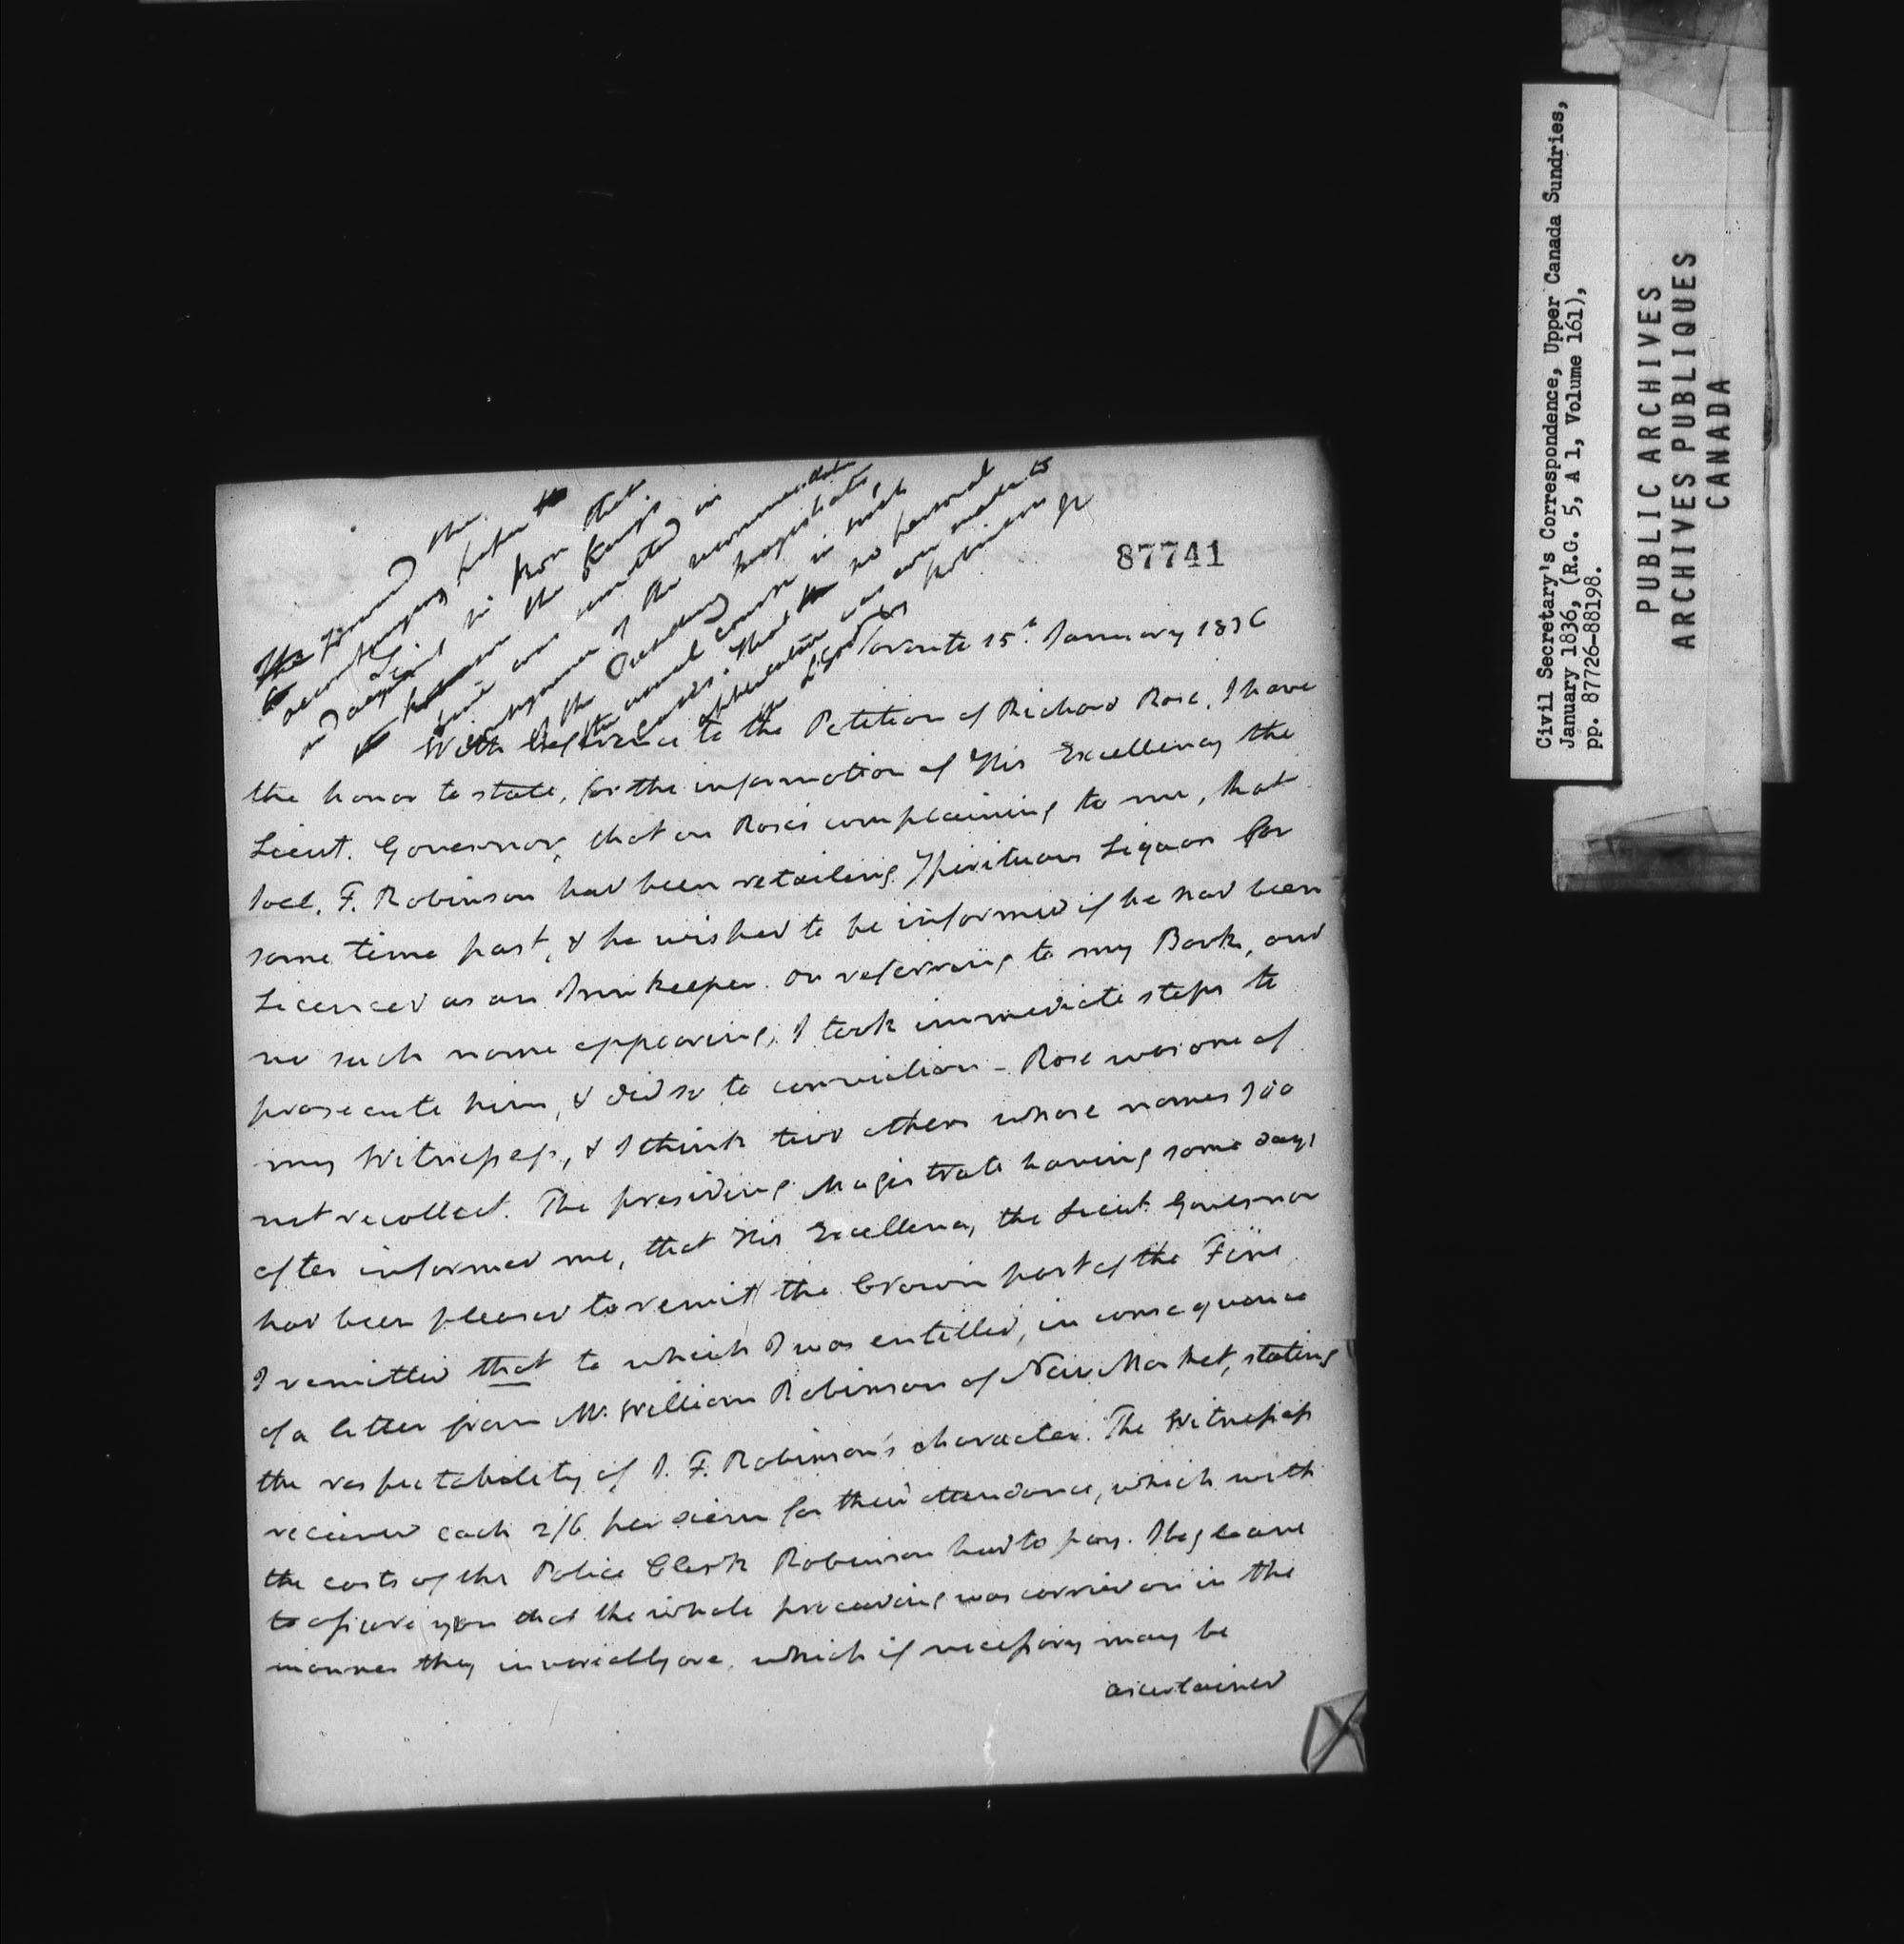 87741
Toronto 15th January 1836
With reference to the Petition of Richard Rose, I have
the honor to state, for the information of His Excellency the
Lieut. Governor, that on Rose's complaining to me, that
F. Robinson had been retailing Spirituous Liquors for
some time past, & he wished to be informed if he had been
Licenced as an Innkeeper. On referring to my Book, and
no such name appearing, I took immediate steps to
prosecute him, & did so to conviction - Rose was one of
my Witnesses, & I think two others whose names I do
not recollect. The presiding Magistrate having some days
after informed me, that His Excellency the Lieut. Governor
had been pleased to remit the Crown part of the Fine
I remitted that to which I was entitled, in consequence
of a letter from Mr. William Robinson of New Market, stating
the respectability of J. F. Robinson's character. The Witnesses
received each 2/6 per diem for their attendance, which with
the costs of the Police Clerk Robinson had to pay. I beg leave
to assure you that the whole proceeding was carried on in the
manner they invariably are, which if necessary may be
ascertained
The
accompanying
that
the Kings
fine remitted in
consequence of the recommendation
of the presiding Magistrate,
the usual course in such
cases. That no personal
application was ever made to
Civil Secretary's Correspondence, Upper Canada Sundries,
January 1836, (R.G. 5, A 1, Volume 161),
pp. 87726-88198.
PUBLIC ARCHIVES
ARCHIVES PUBLIQUES
CANADA